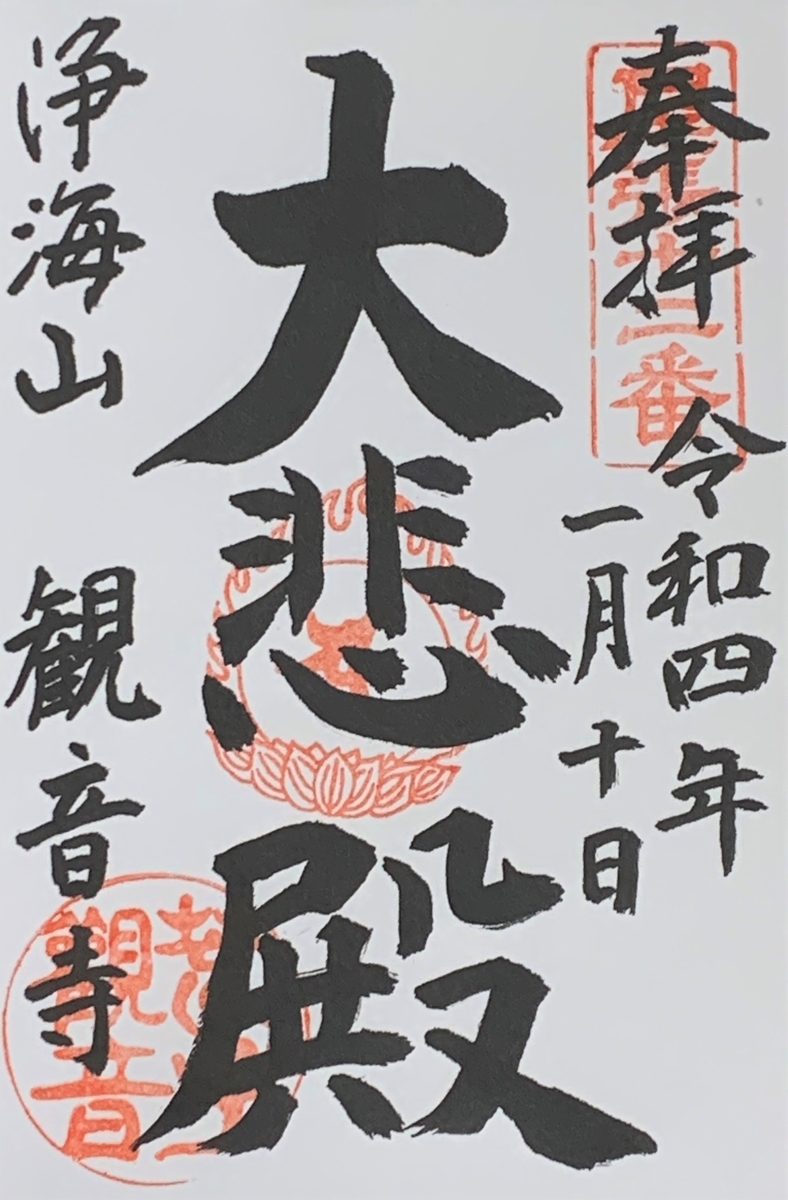 奉拝
二番
令和四年
一月十日
大悲殿
浄海山 観音寺
觀音